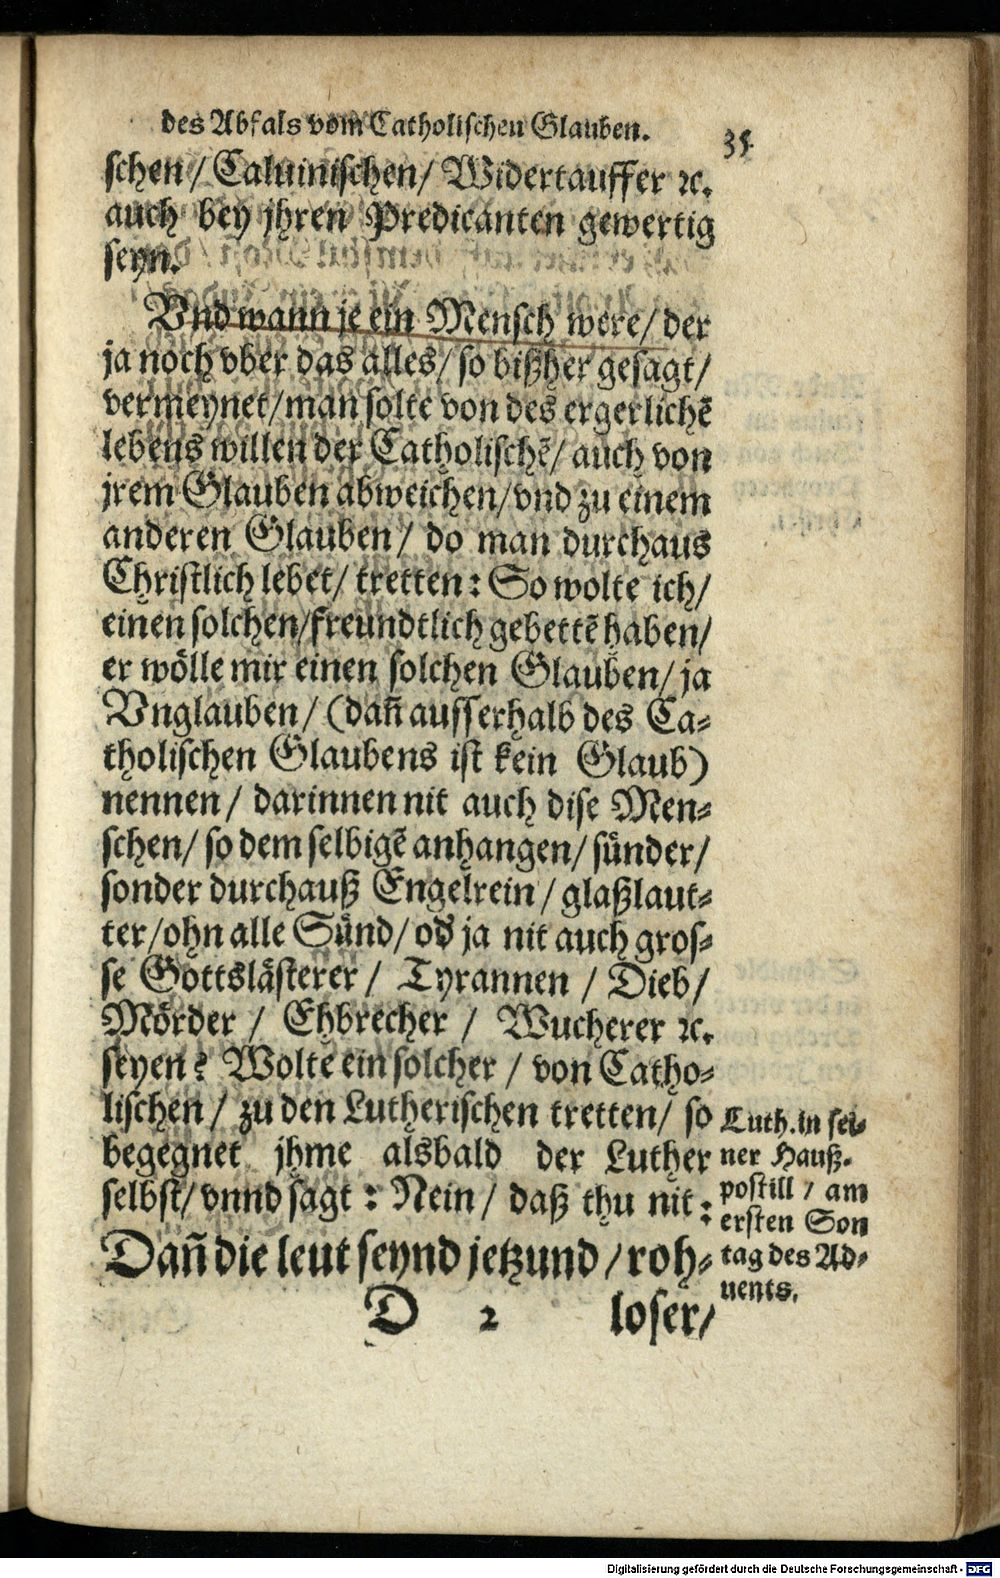 des Abfals vom Catholischen Glauben.
35
schen/ Caluinischen/ Widertauffer ꝛc.
auch bey jhren Predicanten gewertig
seyn.
Vnd wann je ein Mensch were/ der
ja noch vber das alles/ so bißher gesagt/
vermeynet/ man solte von des ergerlichẽ
lebens willen der Catholischẽ/ auch von
jrem Glauben abweichen/ vnd zu einem
anderen Glauben/ do man durchaus
Christlich lebet/ tretten: So wolte ich/
einen solchen/ freundtlich gebettẽ haben/
er wölle mir einen solchen Glauben/ ja
Vnglauben/ (dañ ausserhalb des Ca-
tholischen Glaubens ist kein Glaub)
nennen/ darinnen nit auch dise Men-
schen/ so dem selbigẽ anhangen/ sünder/
sonder durchauß Engelrein/ glaßlaut-
ter/ ohn alle Sünd/ oď ja nit auch gros-
se Gottslästerer/ Tyrannen/ Dieb/
Mörder/ Ehbrecher/ Wucherer ꝛc.
seyen? Wolte ein solcher/ von Catho-
lischen/ zu den Lutherischen tretten/ so
begegnet jhme alsbald der Luther
selbst/ vnnd sagt: Nein/ daß thu nit:
Dañ die leut seynd jetzund/ roh-
Luth. in sei-
ner Hauß-
postill/ am
ersten Son
tag des Ad-
uents.
D 2 loser/
Digitalisierung gefördert durch die Deutsche Forschungsgemeinschaft - DFG